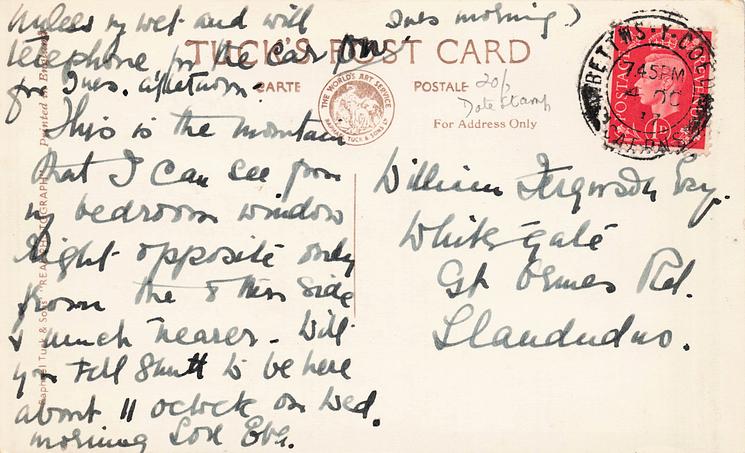 unless my wet and will
telephone for the car for
for Tues. afternoon.
Tues morning)
TUCK'S POST CARD
CARTE
POSTALE
20p
Date Stamp
For Address Only
THE WORLD'S ART SERVICE
RAPHAEL TUCK & SONS LTD
BETTWS-Y-COED
7.45 PM
4 OC
CAERNS
POSTAGE
1D
This is the mountain
that I can see from
my bedroom window
Right opposite only
from the other side
& much nearer. Will
you tell Shutt to be here
about 11 oclock on Wed.
morning Love Eve.
William Ferguson Esq.
White gate
Gt. Ormes Rd.
Llandudno.
Raphael Tuck & Sons' "REAL PHOTOGRAPH"
Printed in England